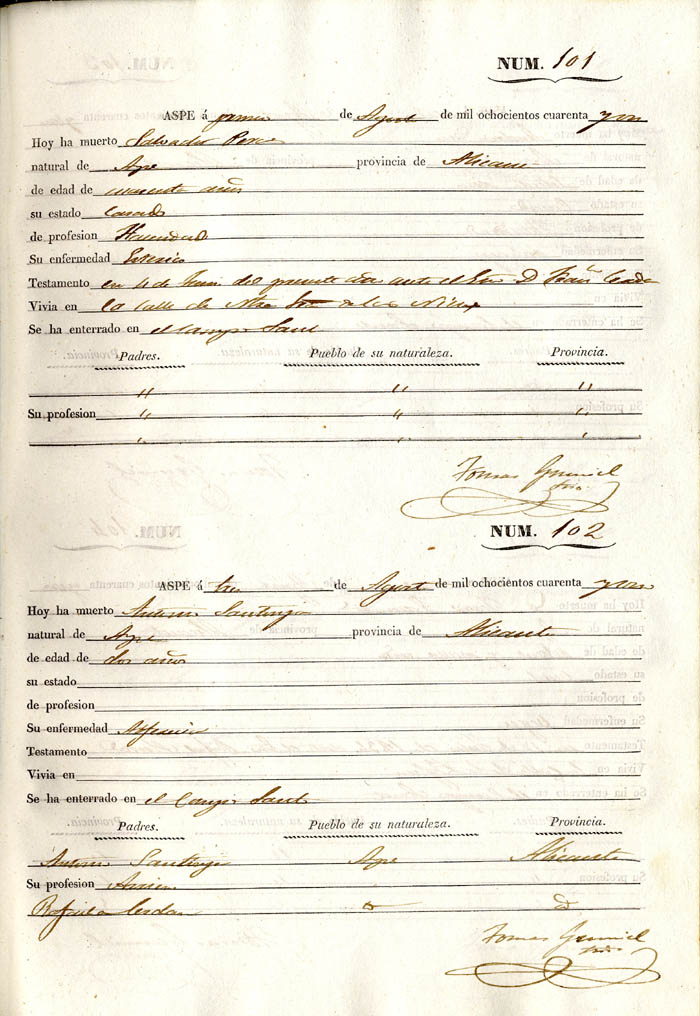 NUM. 101
ASPE á primero de Agosto de mil ochocientos cuarenta y un
Hoy ha muerto Salvador Perez
natural de Aspe provincia de Alicante
de edad de años
su estado Casado
de profesion Hacendado
Su enfermedad
Testamento en 4 de Junio del presente año ante el Esno D. Fran
Vivia en la Calle de Ntra Sra de las Nieves
Se ha enterrado en el Campo Santo
Padres. Pueblo de su naturaleza. Provincia.
" " "
Su profesion " " "
" " "
Tomas
NUM. 102
ASPE á tres de Agosto de mil ochocientos cuarenta y un
Hoy ha muerto Antonio
natural de Aspe provincia de Alicante
de edad de dos años
su estado
de profesion
Su enfermedad
Testamento
Vivia en
Se ha enterrado en el Campo Santo
Padres. Pueblo de su naturaleza. Provincia.
Antonio Aspe Alicante
Su profesion
Rafaela Cerdan
Tomas